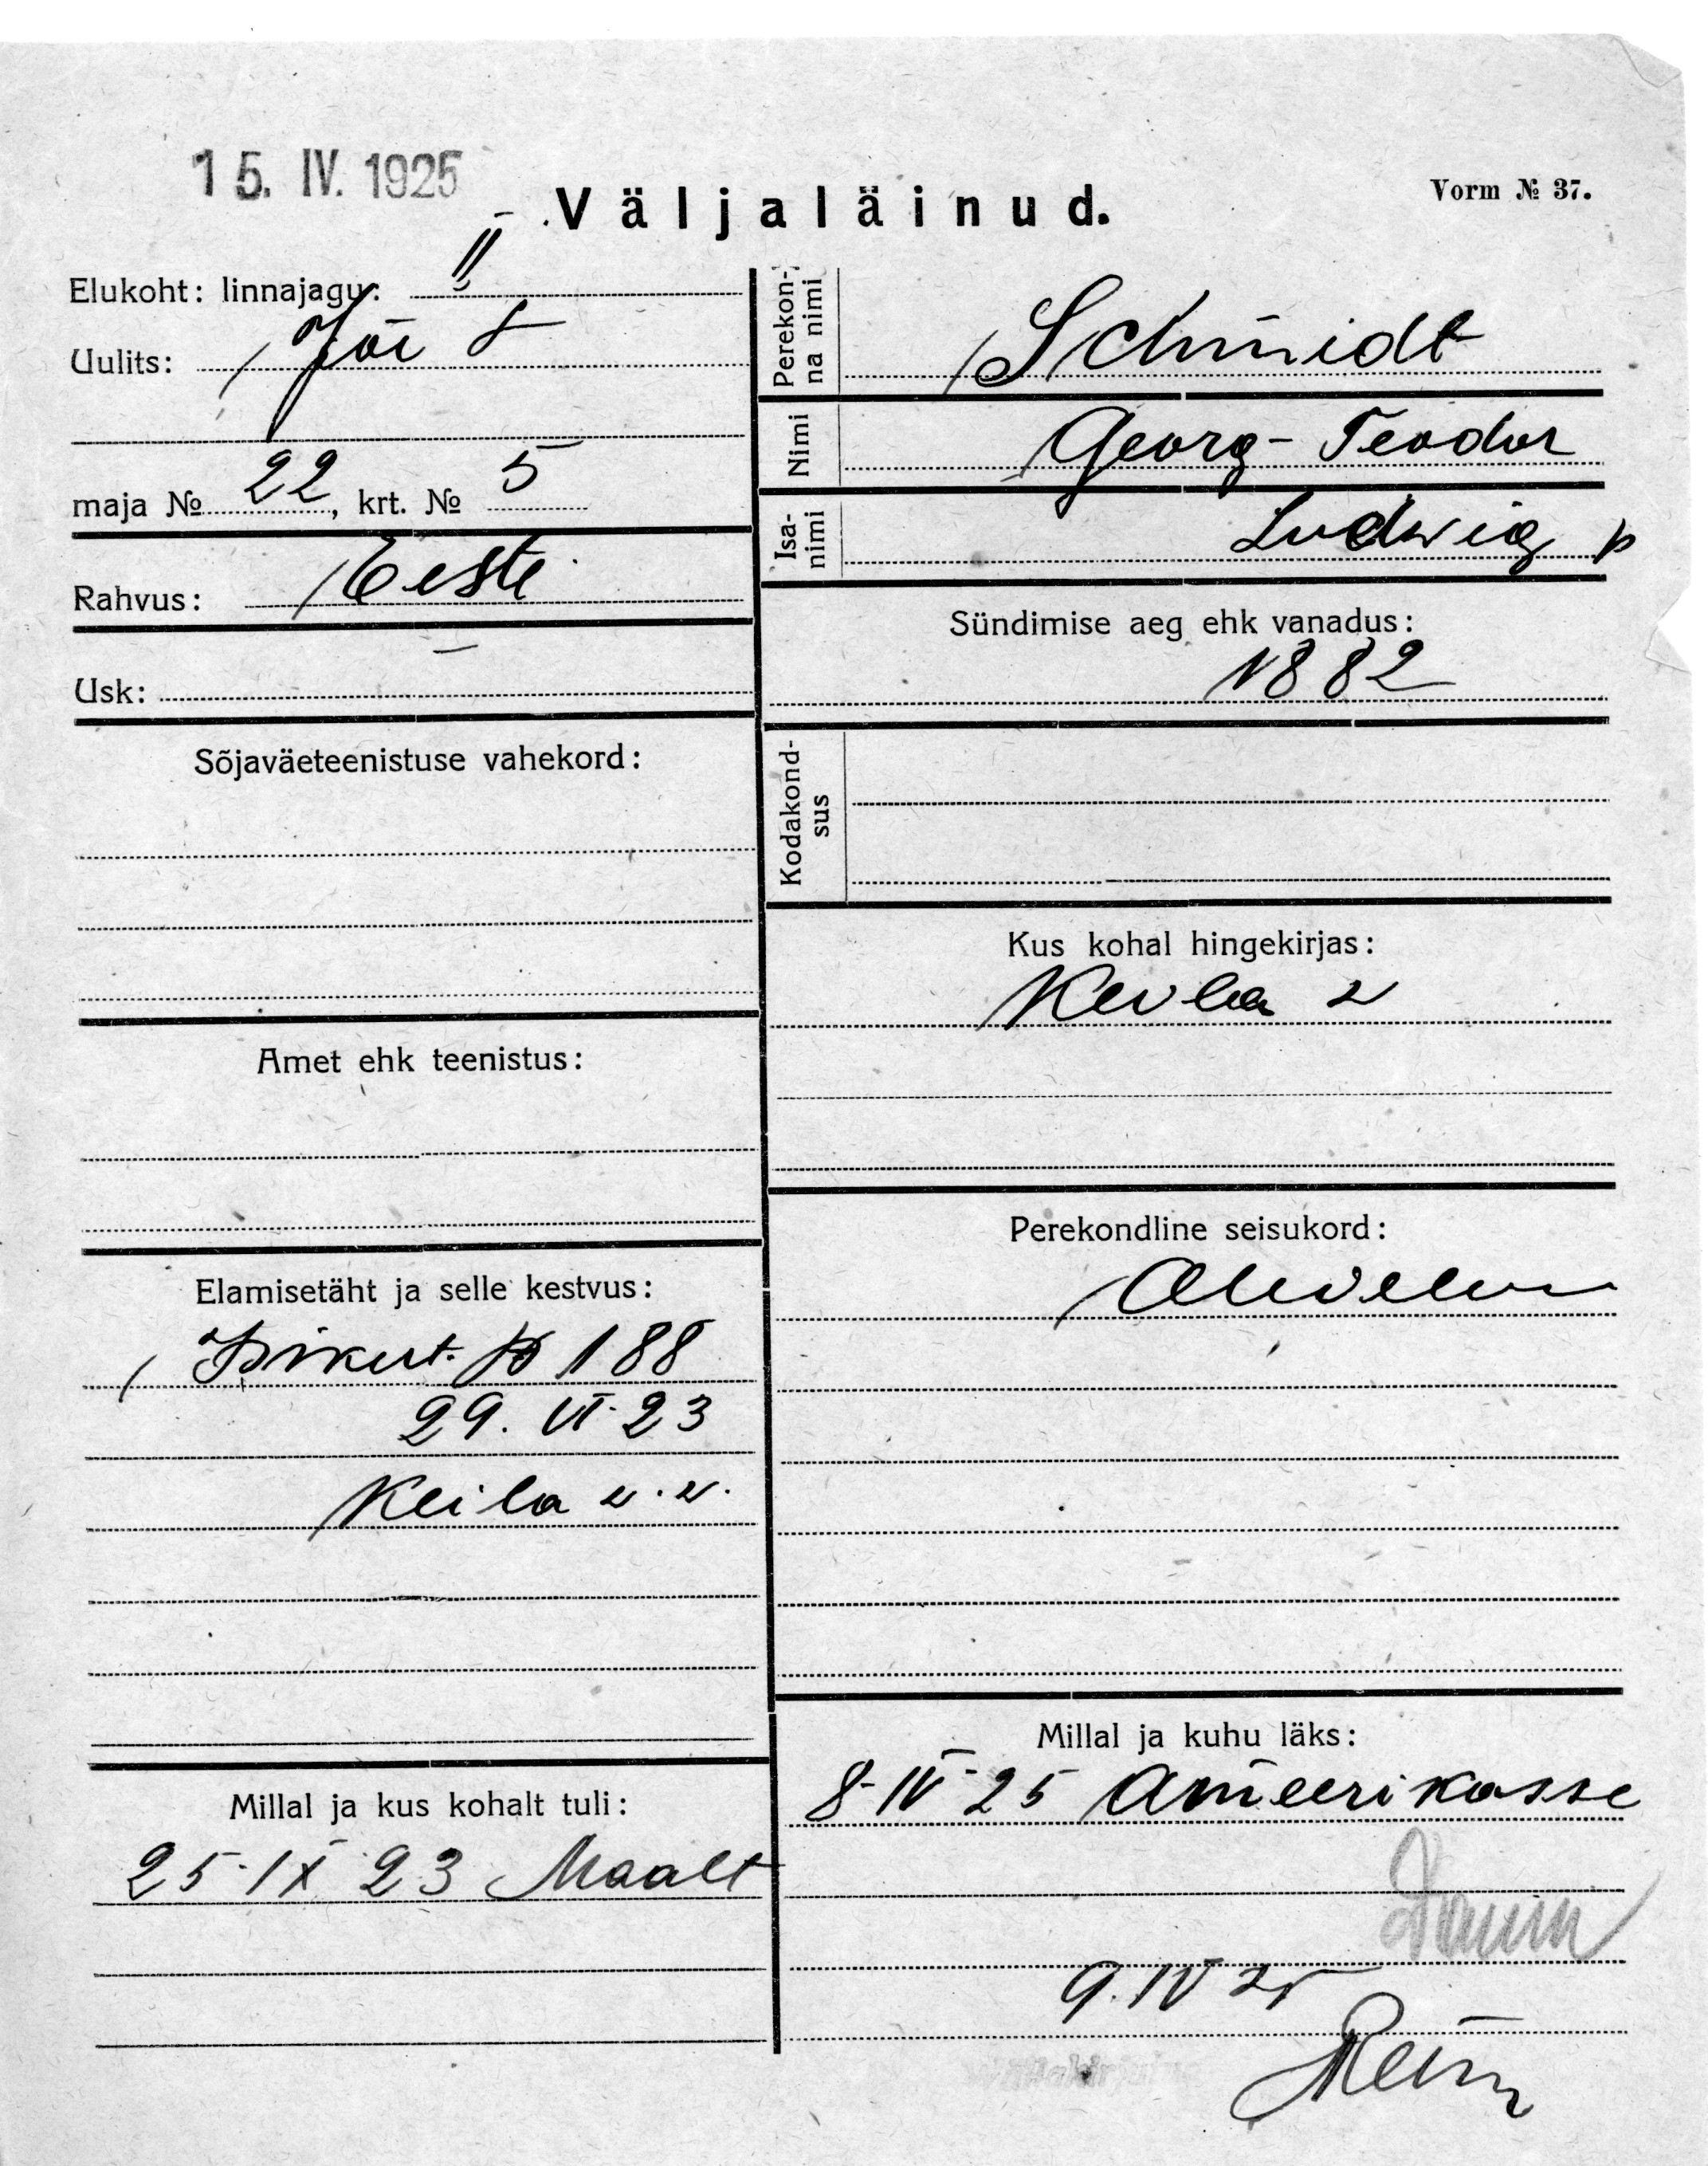 15. IV. 1925
Väljaläinud.
Vorm № 37.
Elukoht: linnajagu: II
Uulits: Jõe t
maja № 22, krt. № 5
Rahvus: Eesti
Usk: —
Sõjaväeteenistuse vahekord:
Amet ehk teenistus:
Elamisetäht ja selle kestvus:
Isikut. № 188
29. VI. 23
Keila v. v.
Millal ja kus kohalt tuli:
25. IX 23 Maalt
Perekonna nimi Schmidt
Nimi Georg-Teodor
Isanimi Ludwig p
Sündimise aeg ehk vanadus:
1882
Kodakondsus
Kus kohal hingekirjas:
Keila v
Perekondline seisukord:
Millal ja kuhu läks:
8-IV-25 Ameerikasse
9. IV 25